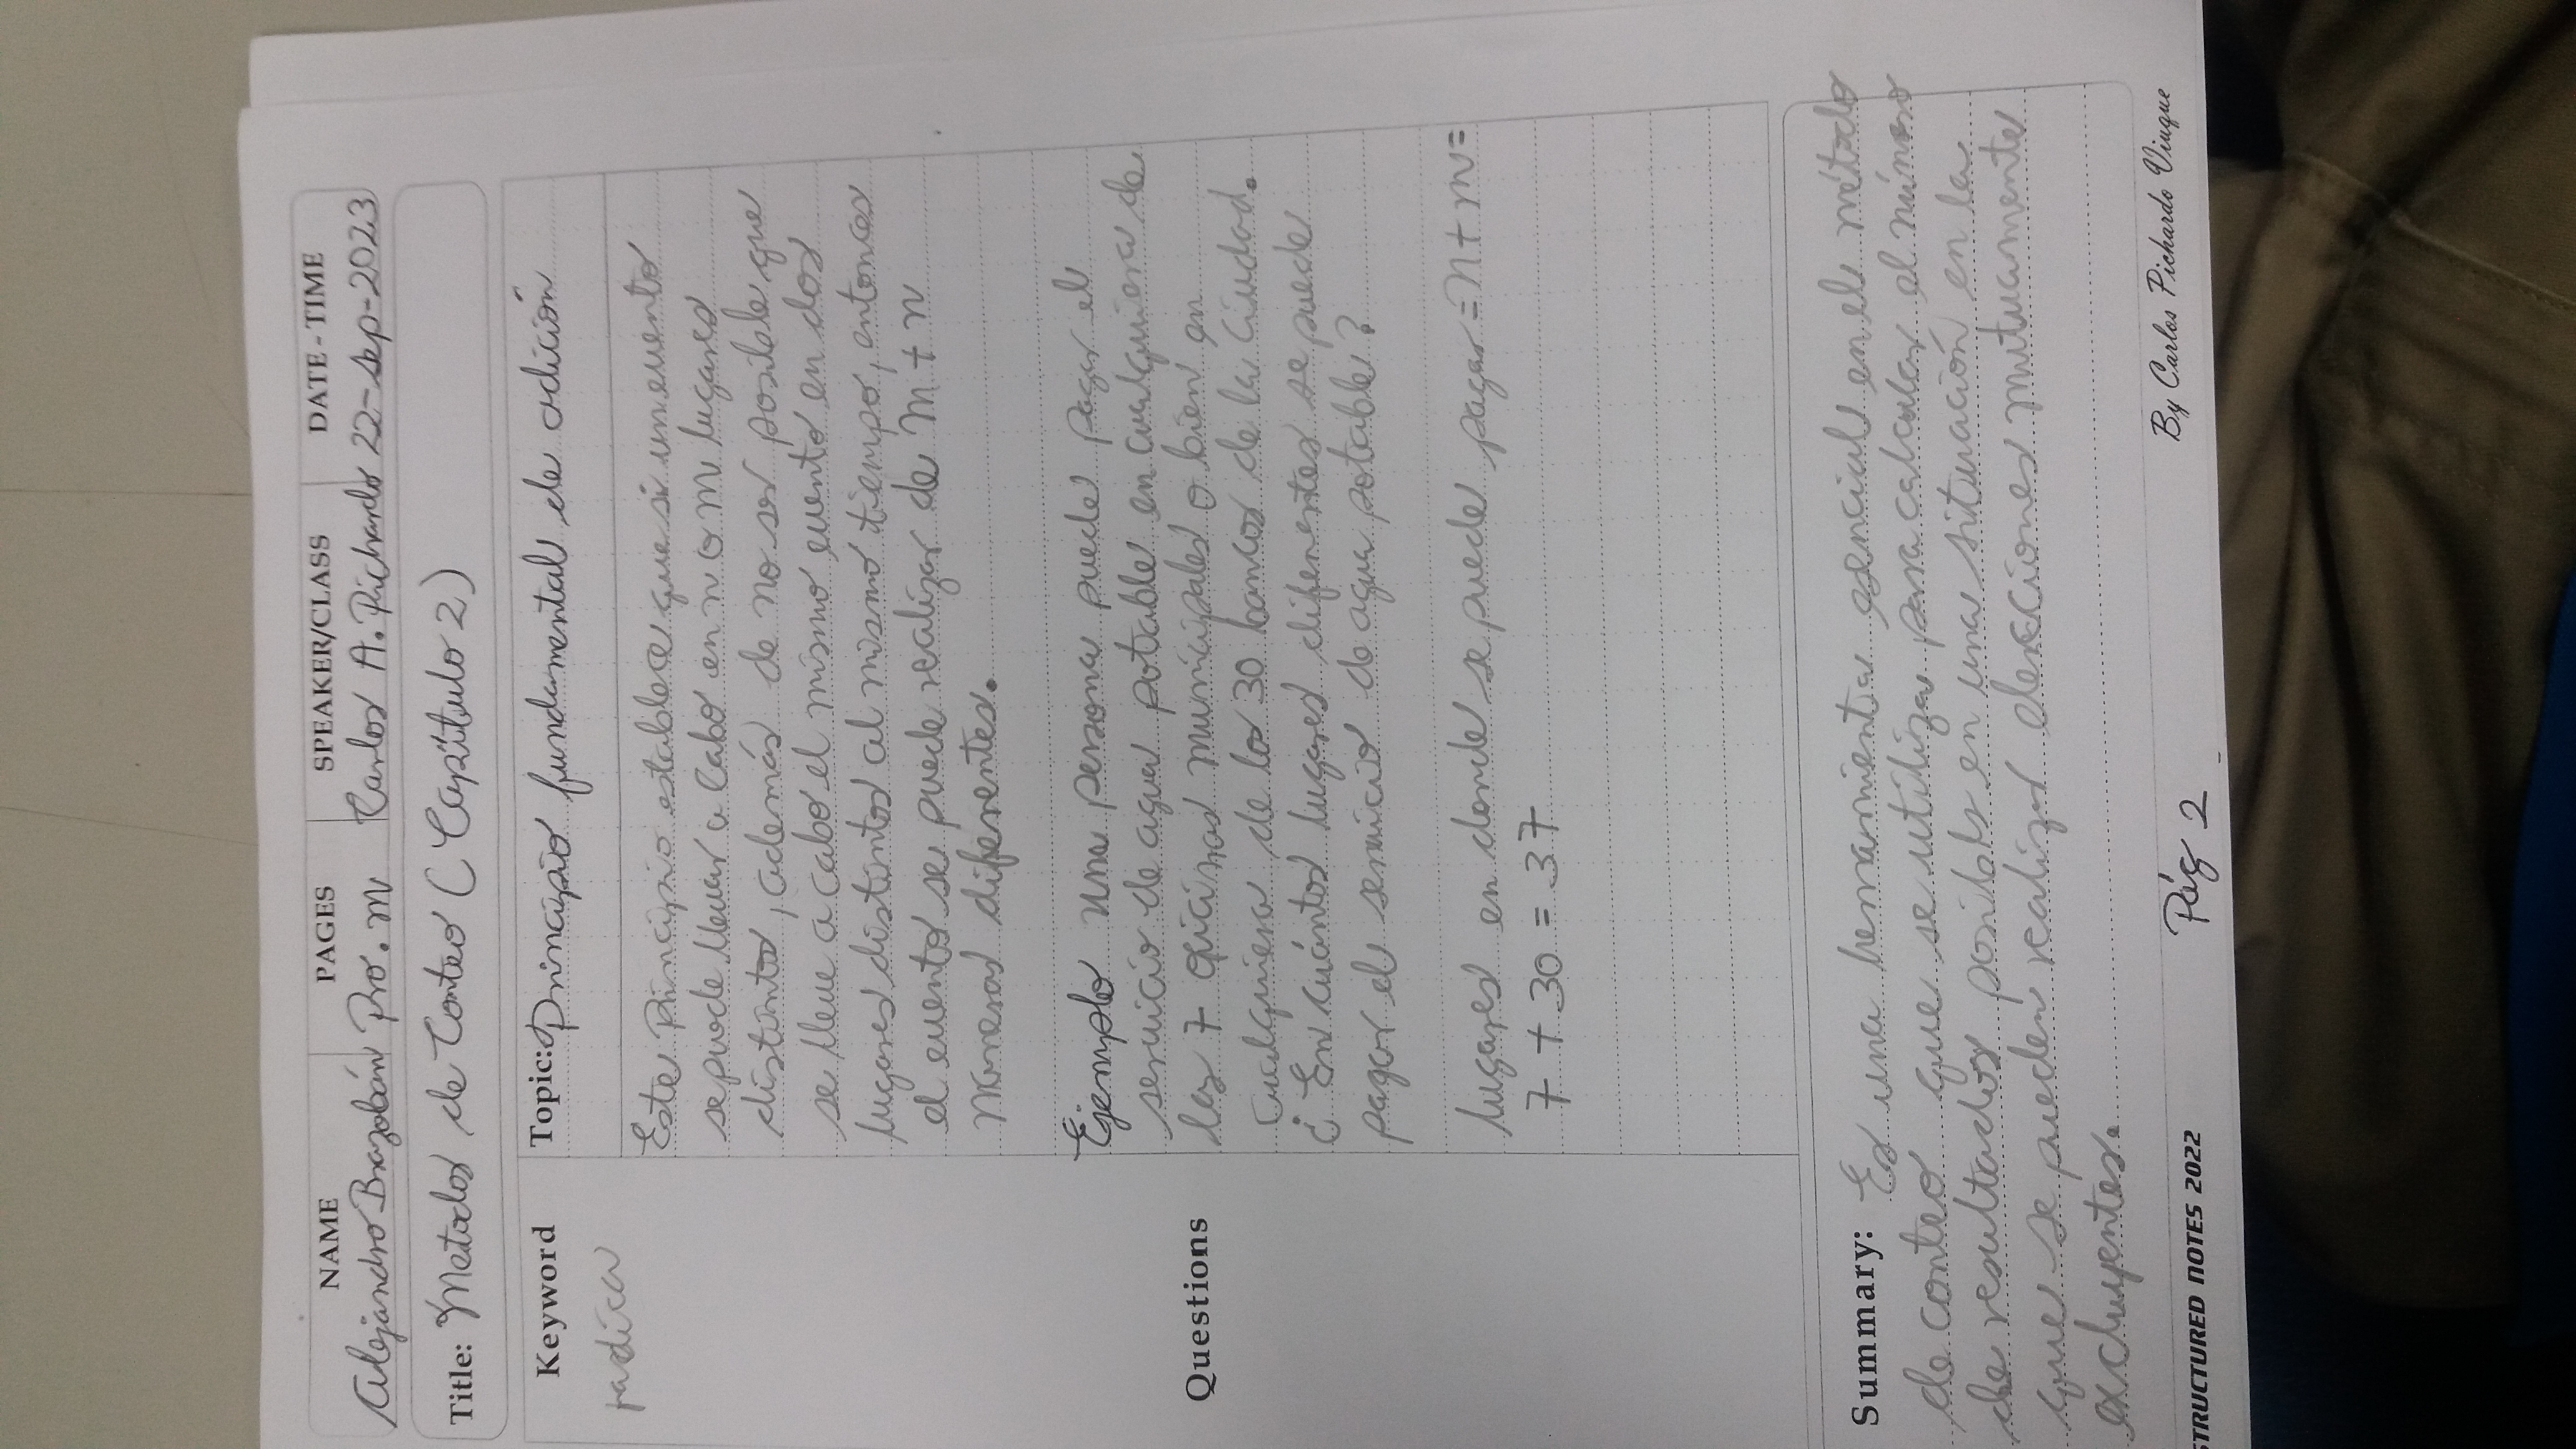 NAME PAGES SPEAKER/CLASS DATE-TIME
Alejandro Brazobán Pro. m Carlos A. Pichardo 22-Sep-2023
Title: Metodos de Conteo (Capítulo 2)
Keyword
radica
Topic: Principio fundamental de adición
Este Principio establece que si un evento
se puede llevar a cabo en n o m lugares
distintos, además de no ser posible que
se lleve a cabo el mismo evento en dos
lugares distintos al mismo tiempo, entonces
el evento se puede realizar de m + n
maneras diferentes.
Ejemplo una persona puede pagar el
servicio de agua potable en cualquiera de
las 7 oficinas municipales o bien en
Questions
cualquiera de los 30 bancos de la ciudad.
¿En cuántos lugares diferentes se puede
pagar el servicio de agua potable?
lugares en donde se puede pagar = n + m =
7 + 30 = 37
Summary: Es una herramienta esencial en el método
de conteo que se utiliza para calcular el número
de resultados posibls en una situación en la
que se pueden realizar elecciones mutuamente
excluyentes.
STRUCTURED NOTES 2022 Pág 2 By Carlos Pichardo Viuque